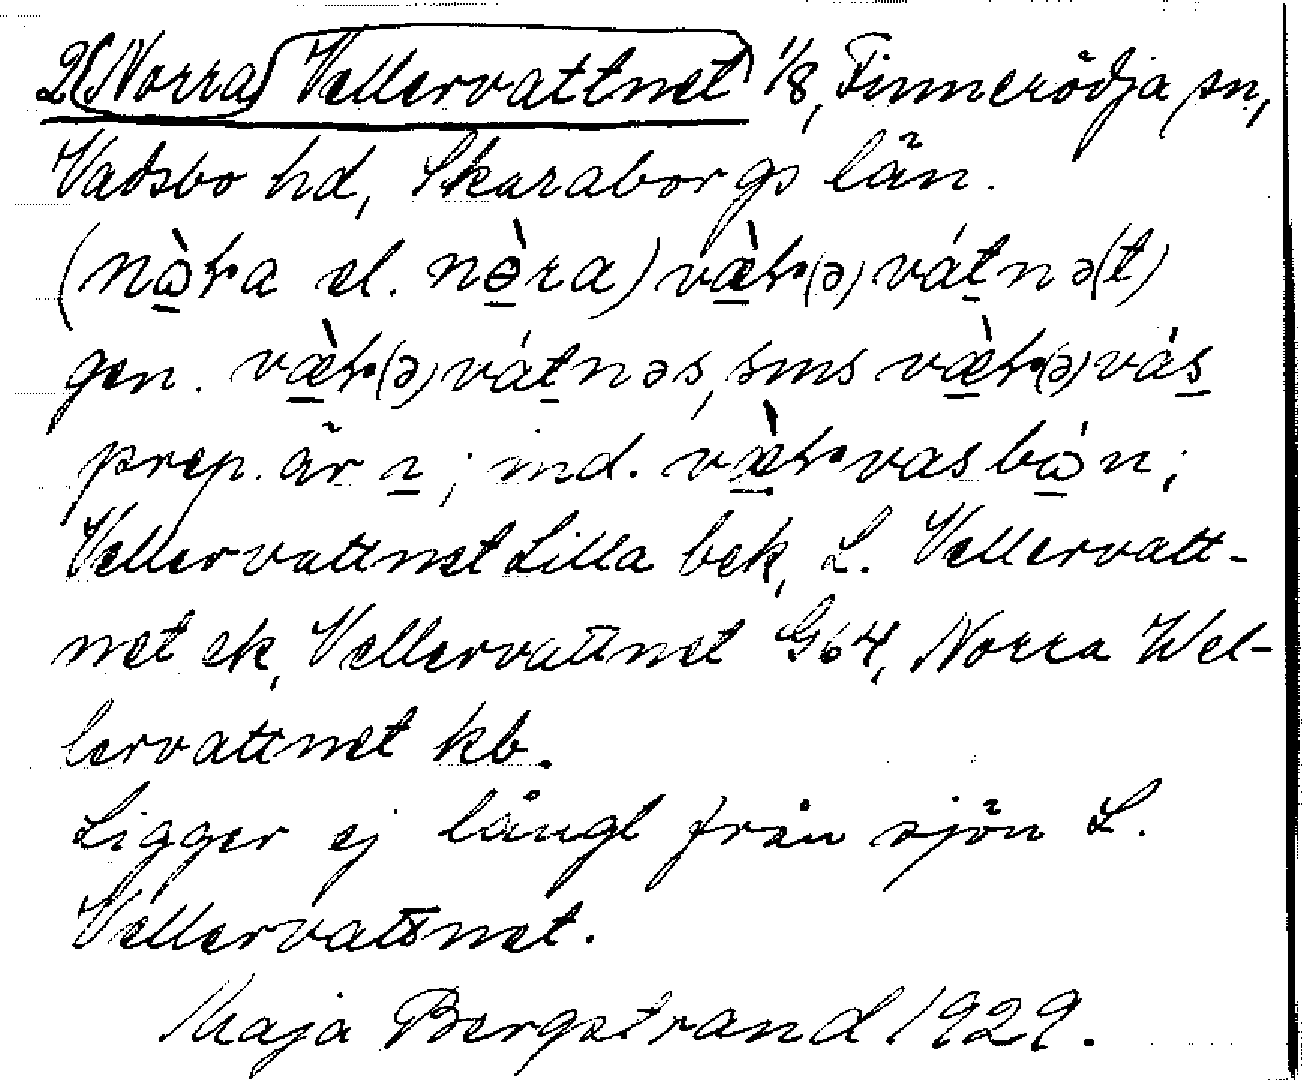 2(Norra) Vellervattnet 1/8, Finnerödja sn,
Vadsbo hd, Skaraborgs län.
(nɷ̀ra el. nɵ̀ra) væ̀r(ə)vátnə(t)
gen. væ̀r(ə)vátnəs, sms væ̀r(ə)vás
prep. är ɪ; ind. væ̀rvasbɷ́n;
Vellervattnet Lilla bek, L. Vellervatt-
net ek, Vellervattnet G64, Norra Wel-
lervattnet kb.
Ligger ej långt från sjön L.
Vellervattnet.
Maja Bergstrand 1929.